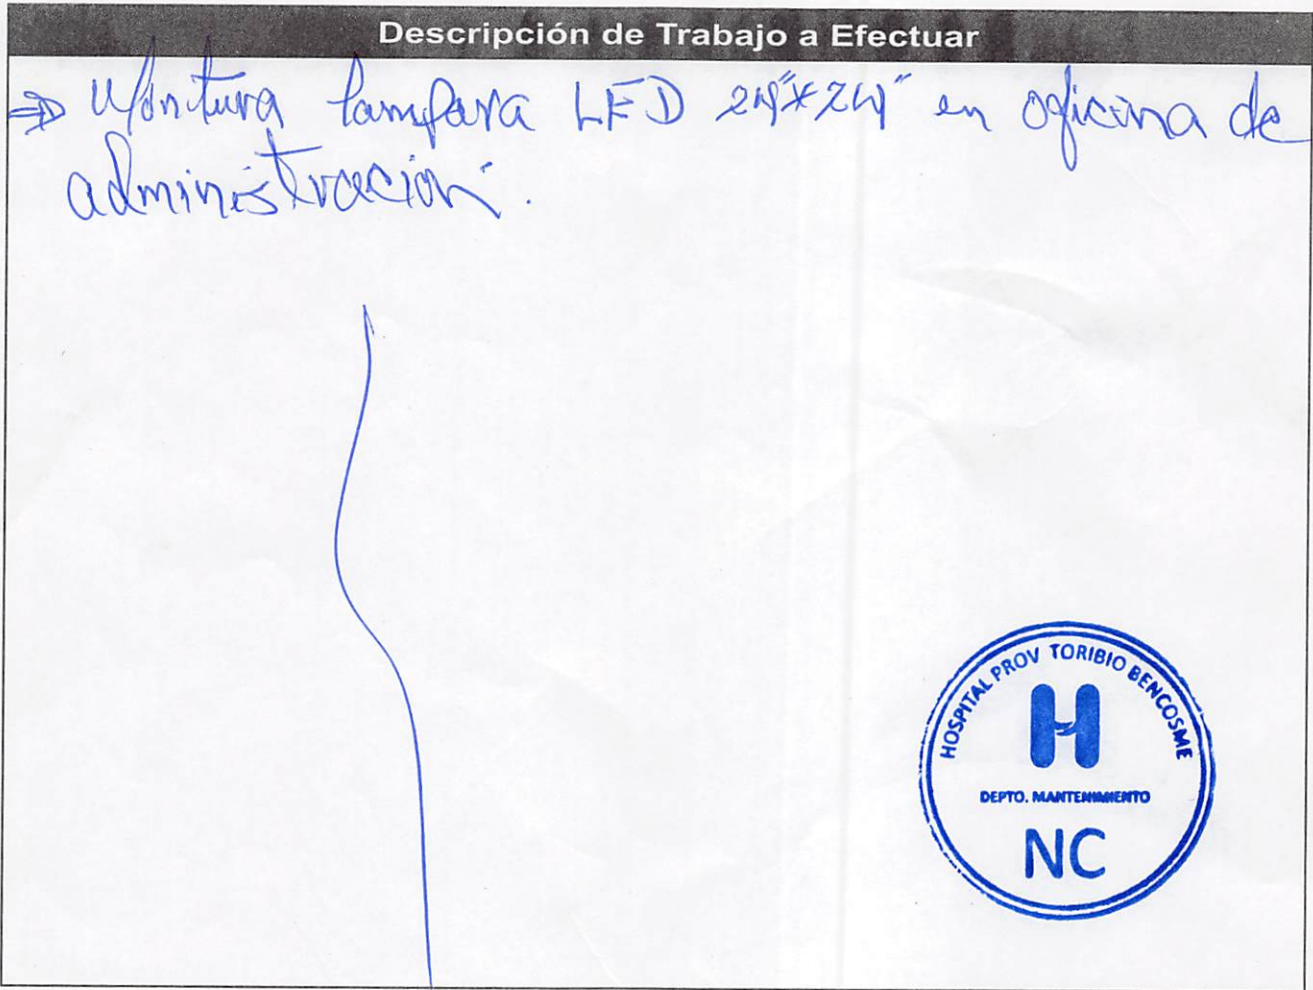 Descripción de Trabajo a Efectuar
⇒ Montura lampara LED 24"x24" en oficina de
administración.
HOSPITAL PROV TORIBIO BENCOSME
H
DEPTO. MANTENIMIENTO
NC